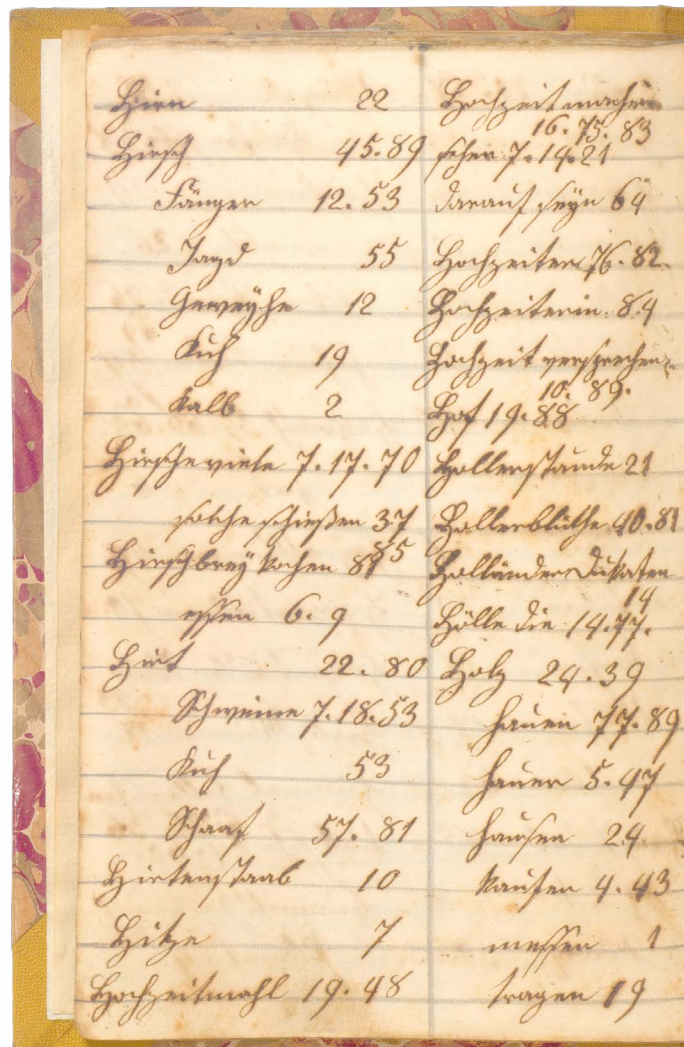 Hirn 22
Hirsch 45. 89
Fänger 12. 53
Jagd 55
Geweyhe 12
Kuh 19
Kalb 2
Hirsche viele 7. 17. 70
solche schießen 37
85
Hirschbrey kochen 81
essen 6. 9
Hirt 22. 80
Schweine 7. 18. 53
Kuh 53
Schaaf 57. 81
Hirtenstaab 10
Hitze 7
Hochzeitmahl 19. 48
Hochzeit machen
16. 75. 83
sehen 7. 14. 21
darauf seyn 64
Hochzeiter 76. 82.
Hochzeiterin. 84
Hochzeit versprechen
10. 89.
Hof 19. 88
Hollerstaude 21
Hollerblüthe 40. 81
Holländer Dukaten
14
Hölle die 14. 77.
Holz 24. 39
hauen 77. 89
hauer 5. 47
haufen 24
kaufen 4. 43
messen 1
tragen 19